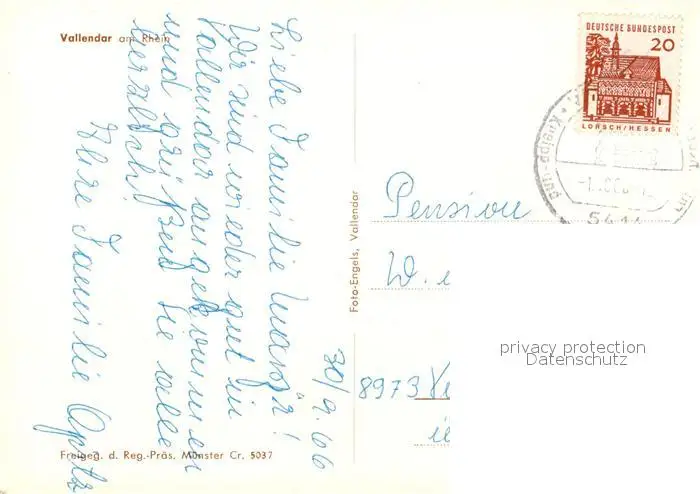 Vallendar am Rhein
30/9.66
Liebe Familie
Wir sind wieder gut in
Vallendar angekommen
und grüßend Sie alle
herzlich!
Ihre Familie
Freigeg. d. Reg.-Präs. Münster Cr. 5037
Foto-Engels, Vallendar
DEUTSCHE BUNDESPOST
20
LORSCH/HESSEN
Kneipp-
5414
Pension
W.
8973
privacy protection
Datenschutz